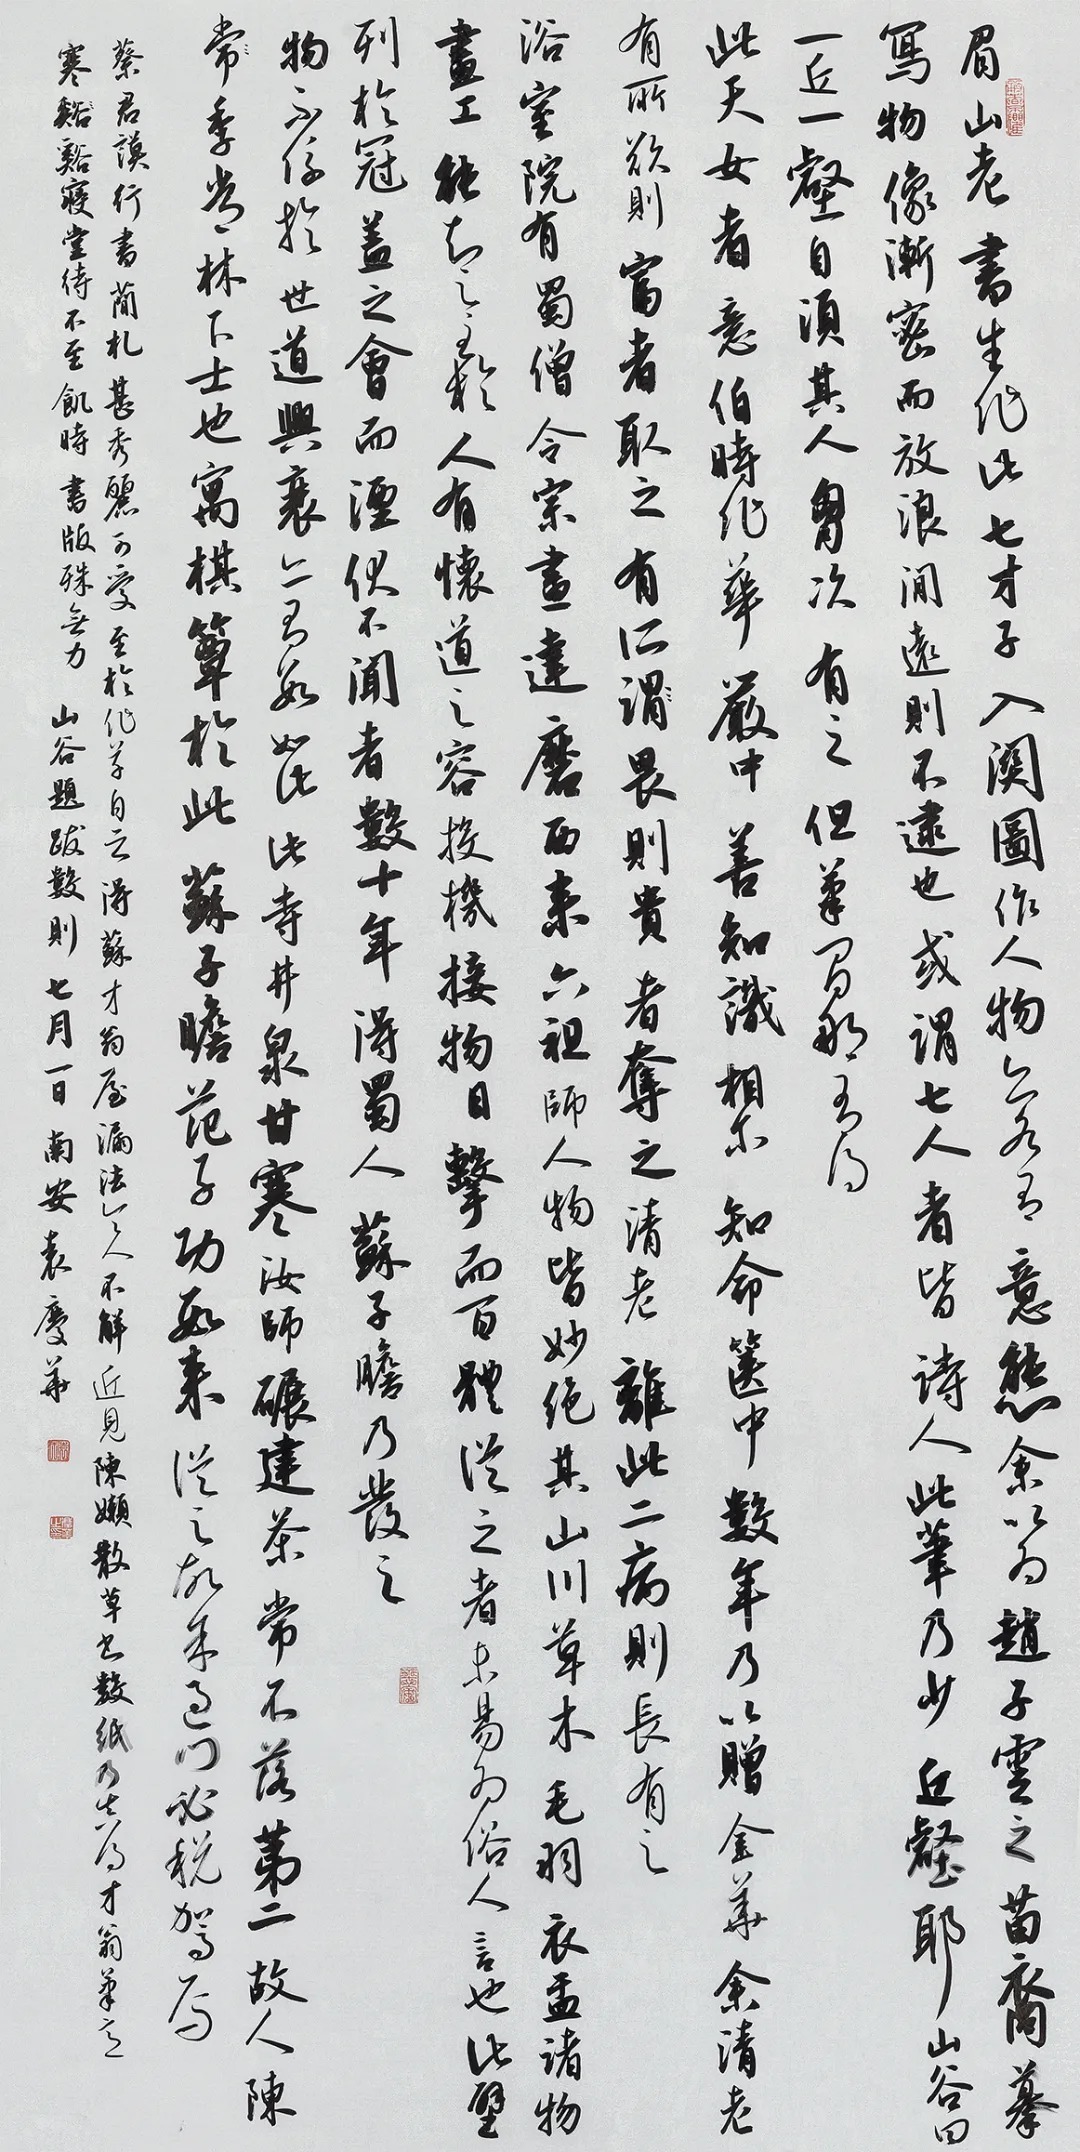 眉山老書生作此七才子入關圖作人物亦各有意態余以為趙子雲之苗裔摹
寫物像漸密而放浪閒遠則不逮也或謂七人者皆詩人此筆乃少丘壑耶山谷曰
一丘一壑自須其人胸次有之但筆間那可得
此天女者意伯時作華嚴中善知識相尔知命篋中數年乃以贈金華余清老
有所欲則富者取之有所謂畏則貴者奪之清老離此二病則長有之
浴室院有蜀僧令宗畫達磨西來六祖師人物皆妙絕其山川草木毛羽衣盂諸物
畫工能知之至於人有懷道之容投機接物目擊而百體從之者未易為俗人言也此壁
列於冠蓋之會而湮伏不聞者數十年得蜀人蘇子瞻乃發之
物不係於世道興衰亦有數如此此寺井泉甘寒汝師碾建茶常不落第二故人陳
常季常林下士也寓棋簟於此蘇子瞻范子功數來從之故余過門必稅駕焉
蔡君謨行書簡札甚秀麗可愛至於作草自云得蘇才翁屋漏法令人不解近見陳嬾散草書數紙乃真得才翁筆意
寒谿谿寢堂待不至飢時書版殊無力 山谷題跋數則 七月一日 南安袁慶華